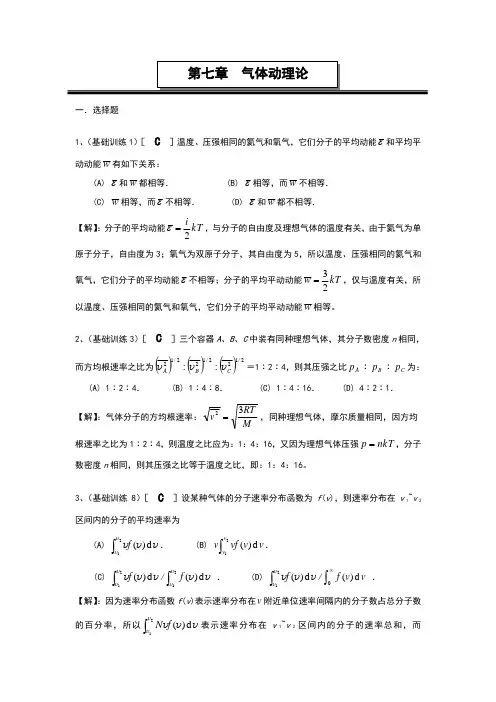 第七章 气体动理论
一．选择题
1、(基础训练1)［ C ］温度、压强相同的氦气和氧气，它们分子的平均动能 $\bar{\varepsilon}$ 和平均平
动动能 $\bar{w}$ 有如下关系：
(A) $\bar{\varepsilon}$ 和 $\bar{w}$ 都相等． (B) $\bar{\varepsilon}$ 相等，而 $\bar{w}$ 不相等．
(C) $\bar{w}$ 相等，而 $\bar{\varepsilon}$ 不相等． (D) $\bar{\varepsilon}$ 和 $\bar{w}$ 都不相等．
【解】：分子的平均动能 $\bar{\varepsilon}=\frac{i}{2}kT$，与分子的自由度及理想气体的温度有关，由于氦气为单
原子分子，自由度为3；氧气为双原子分子，其自由度为5，所以温度、压强相同的氦气和
氧气，它们分子的平均动能 $\bar{\varepsilon}$ 不相等；分子的平均平动动能 $\bar{w}=\frac{3}{2}kT$，仅与温度有关，所
以温度、压强相同的氦气和氧气，它们分子的平均平动动能 $\bar{w}$ 相等。
2、(基础训练3)［ C ］三个容器 A、B、C 中装有同种理想气体，其分子数密度 n 相同，
而方均根速率之比为 $(\overline{v_A^2})^{1/2}:(\overline{v_B^2})^{1/2}:(\overline{v_C^2})^{1/2}$ ＝1∶2∶4，则其压强之比 $p_A$∶$p_B$∶$p_C$ 为：
(A) 1∶2∶4． (B) 1∶4∶8． (C) 1∶4∶16． (D) 4∶2∶1．
【解】：气体分子的方均根速率：$\sqrt{\overline{v^2}}=\sqrt{\frac{3RT}{M}}$，同种理想气体，摩尔质量相同，因方均
根速率之比为1∶2∶4，则温度之比应为：1：4：16，又因为理想气体压强 $p=nkT$，分子
数密度 n 相同，则其压强之比等于温度之比，即：1：4：16。
3、(基础训练8)［ C ］设某种气体的分子速率分布函数为 f(v)，则速率分布在 v₁~v₂
区间内的分子的平均速率为
(A) $\int_{v_1}^{v_2} vf(v)\,\mathrm{d}v$． (B) $v\int_{v_1}^{v_2} vf(v)\,\mathrm{d}v$．
(C) $\int_{v_1}^{v_2} vf(v)\,\mathrm{d}v/\int_{v_1}^{v_2} f(v)\,\mathrm{d}v$ ． (D) $\int_{v_1}^{v_2} vf(v)\,\mathrm{d}v/\int_{0}^{\infty} f(v)\,\mathrm{d}v$ ．
【解】：因为速率分布函数 f(v) 表示速率分布在 v 附近单位速率间隔内的分子数占总分子数
的百分率，所以 $\int_{v_1}^{v_2} Nvf(v)\,\mathrm{d}v$ 表示速率分布在 v₁~v₂ 区间内的分子的速率总和，而